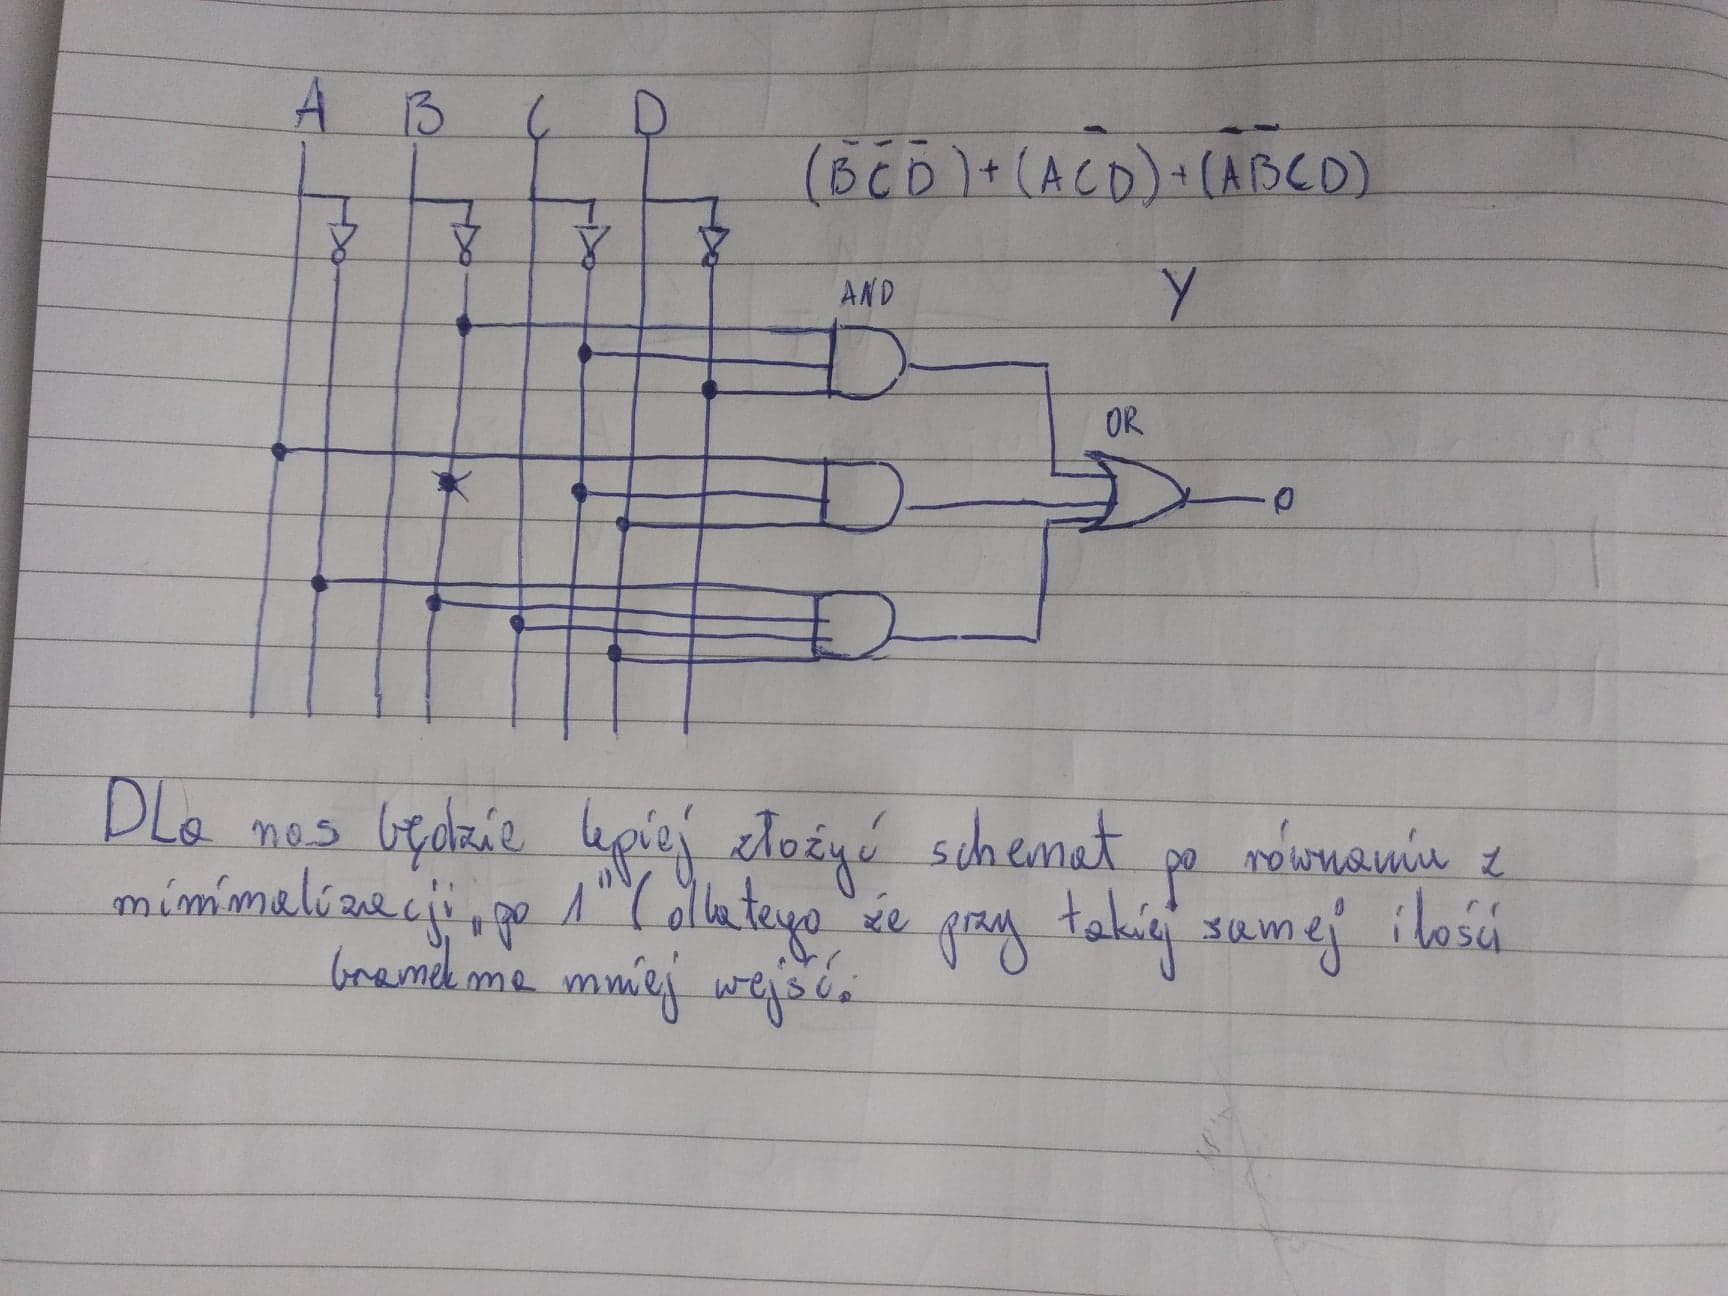 A B C D
(B̄ C̄ D̄) + (A C̄ D) + (Ā B̄ C D)
Y
AND
OR
DLa nas będzie lepiej złożyć schemat po równaniu z
minimalizacji „po 1" (dlatego że przy takiej samej ilości
bramek ma mniej wejść.